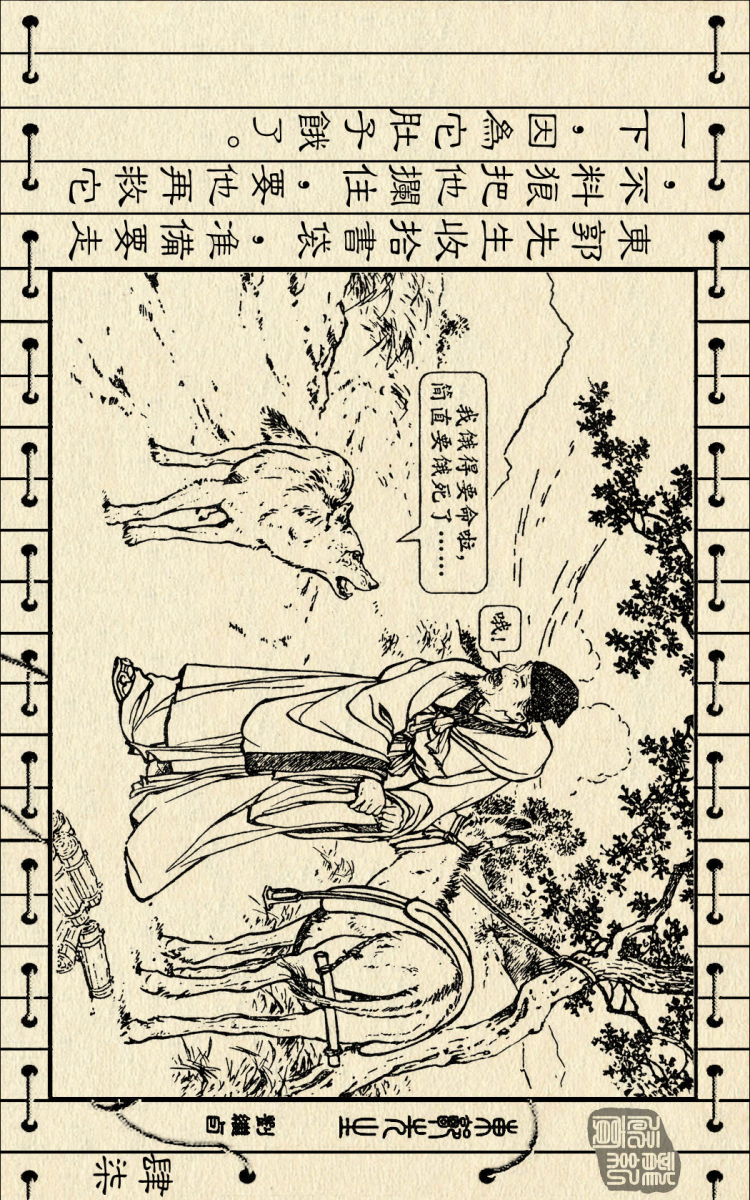 東郭先生收拾書袋,准備要走
,不料狼把他攔住,要他再救它
一下,因為它肚子餓了。
我饿得要命啦,
简直要饿死了……
哦!
東郭先生
劉繼卣
肆柒